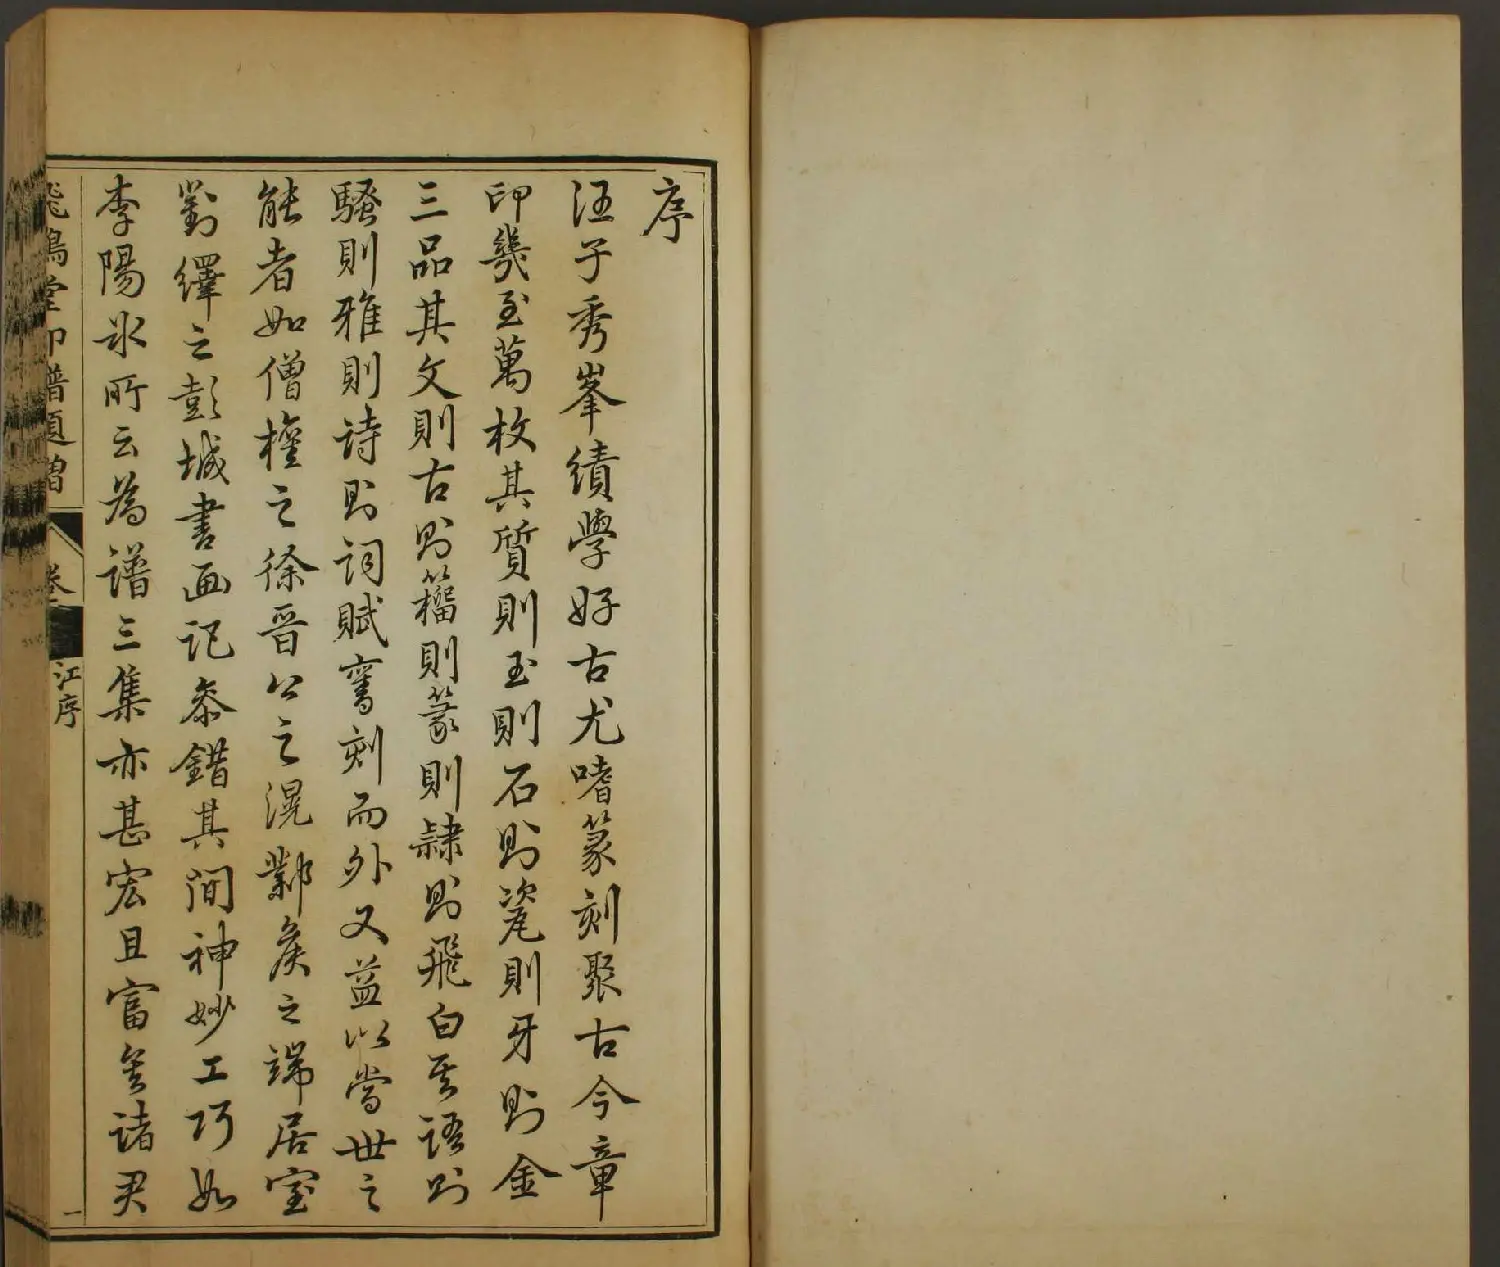 序
汪子秀峯績學好古尤嗜篆刻聚古今章
印幾至萬枚其質則玉則石則瓷則牙則金
三品其文則古則籀則篆則隷則飛白其語則
騷則雅則詩則詞賦舊刻而外又益以當世之
能者如僧權之徐晋公之滉酇侯之端居室
劉繹之彭城書画記叅錯其間神妙工巧如
李陽氷所云為譜三集亦甚宏且富矣諸君
飛鴻堂印譜題贈
卷一
江序
一